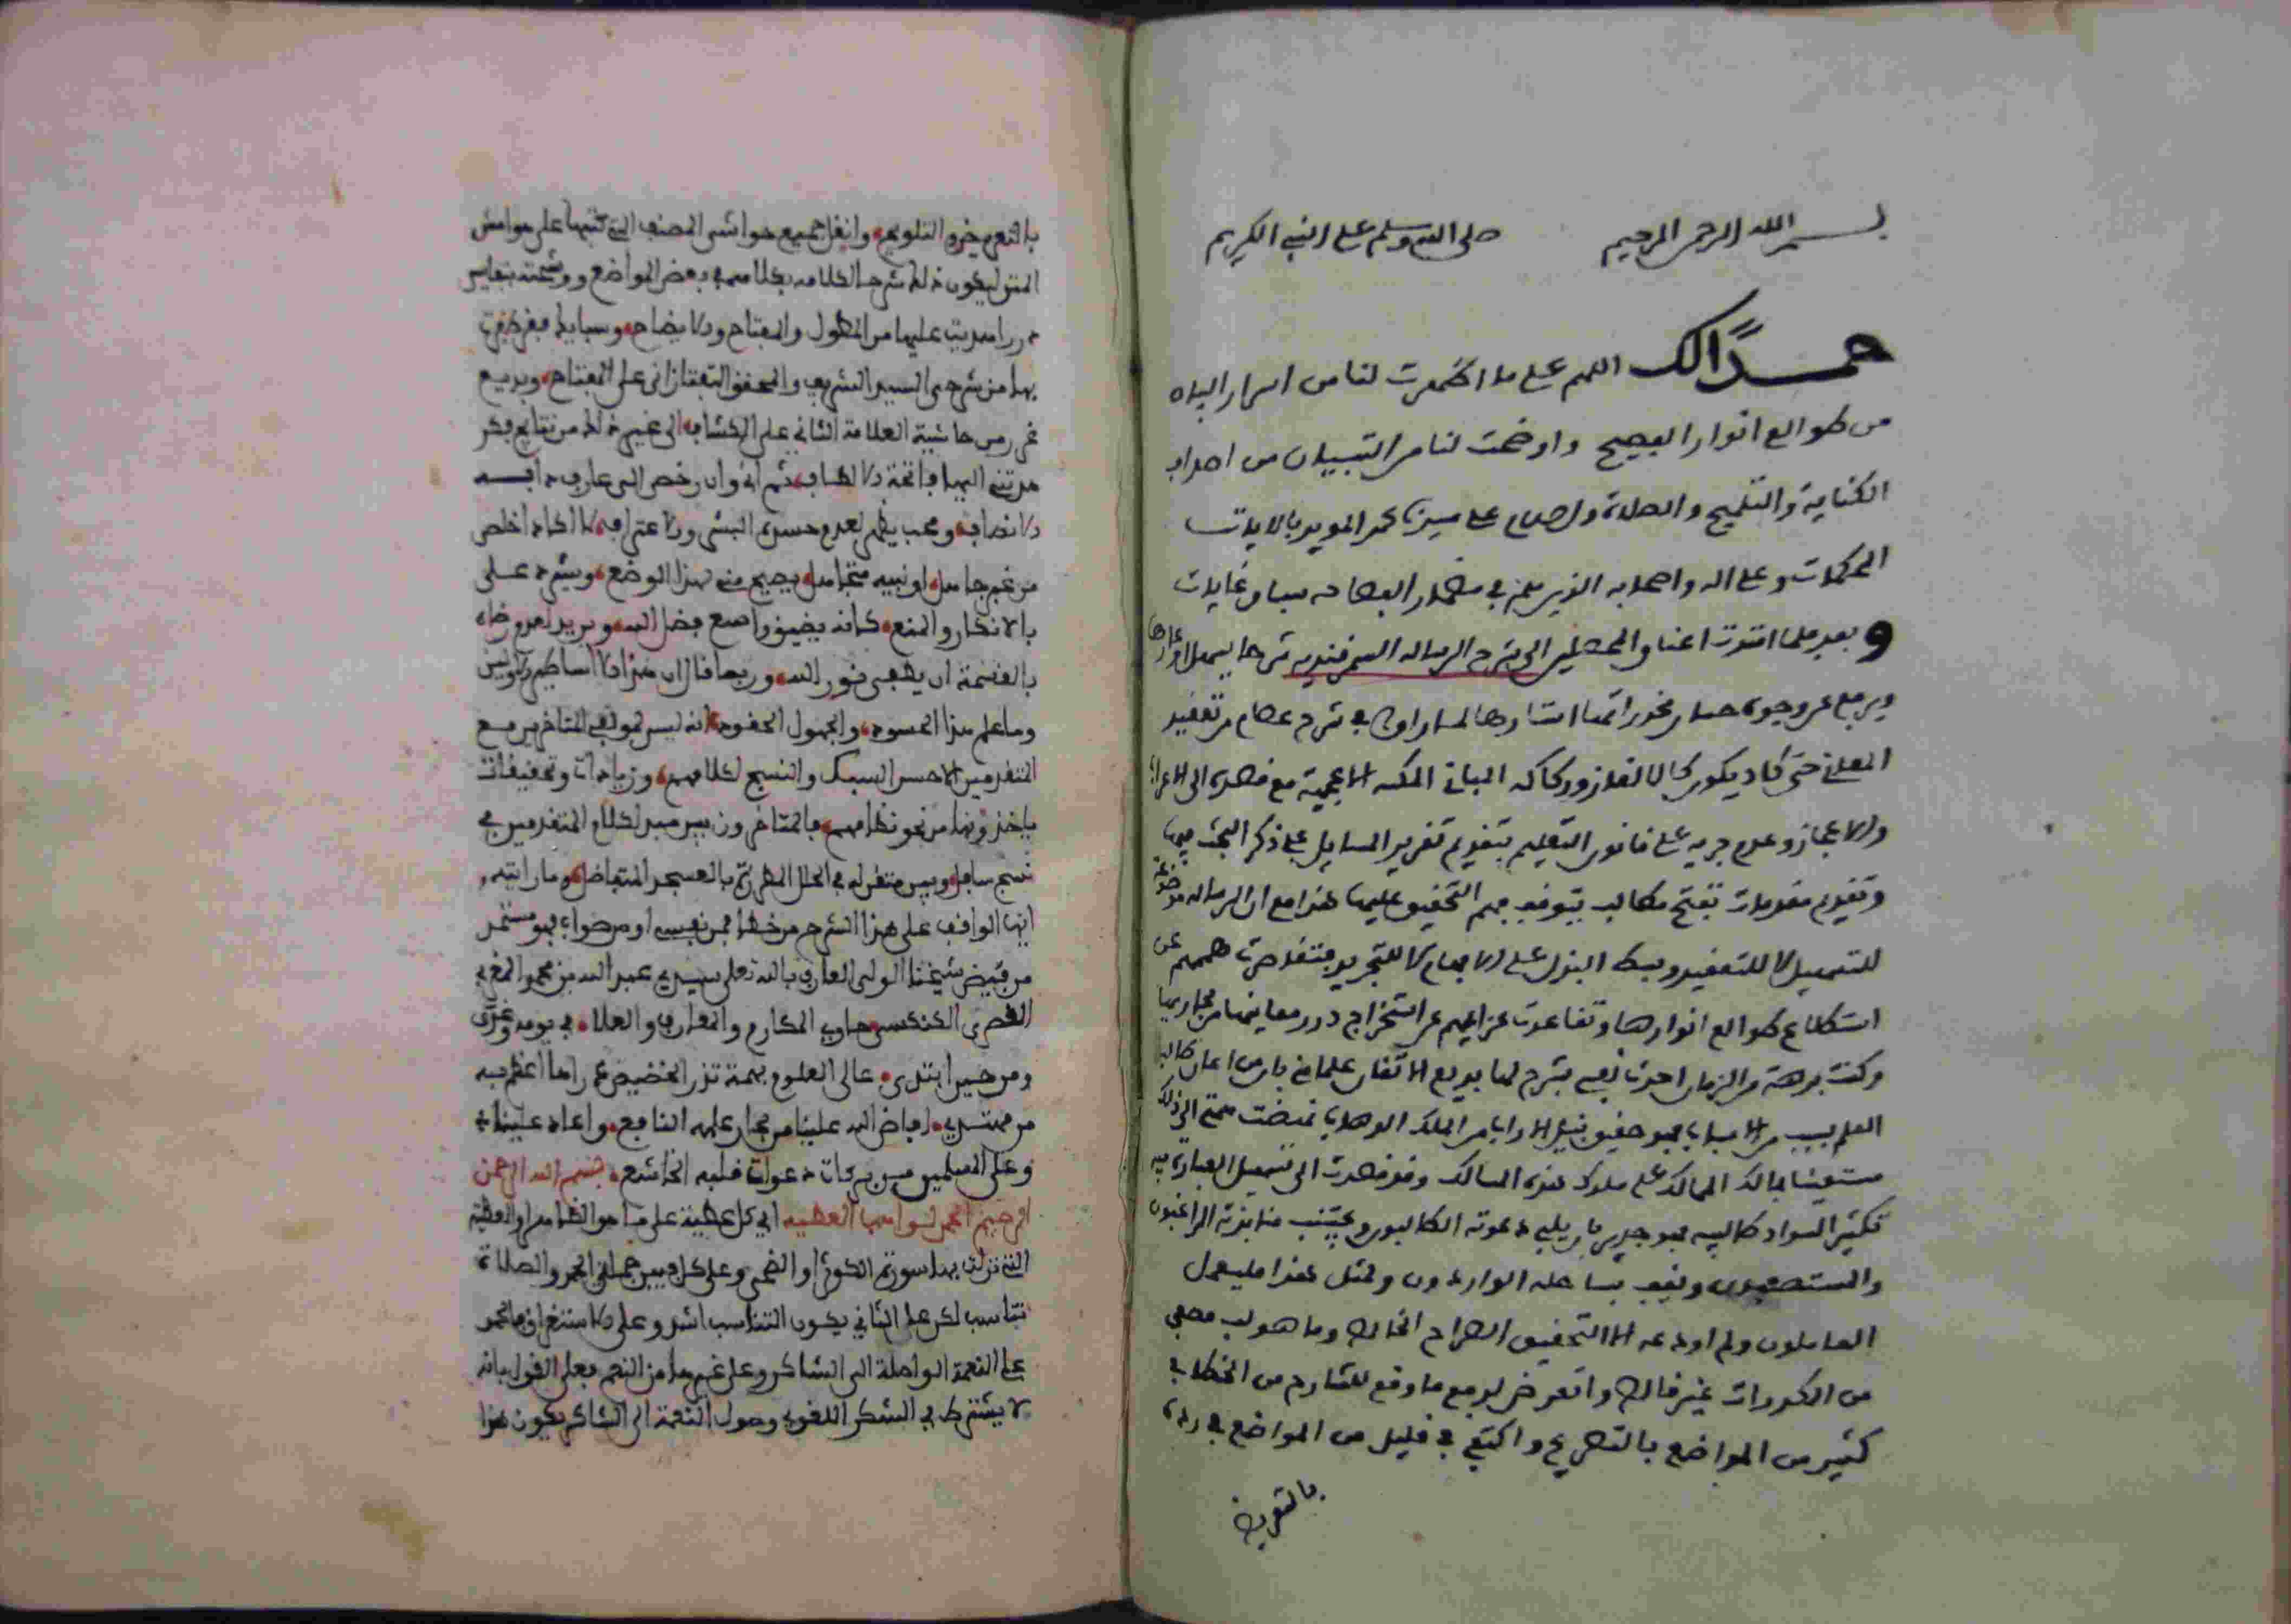 بسم الله الرحمن الرحيم صلى الله وسلم على النبي الكريم
حمدا لك اللهم على ما اظهرت لنا من اسرار البلاغة
من طوالع انوار الفصيح واوضحت لنا من التبيان من اصداف
الكناية والتلميح والصلاة والسلام على سيدنا محمد المويد بالايات
المحكمات وعلى اله واصحابه الذين لهم في مضمار الفصاحه سباق غايات
وبعد فلما امتدت اعناق المحصلين الى شرح الرساله السمرقنديه شرحا يسهل
ويرفع عن وجوه حسان مخدراتها استارها لما راوه في شرح عصام من تعقيد
المعاني حتى كاد يكون كالالغاز وركاكه المباني المكسه الاعجمية مع قصده الى الاغراب
والاعجاز وعدم جريه على قانون التعليم بتقويم تقرير المسايل على ذكر البحث فيها
وتقديم مقدمات تفتح مطالب يتوقف فهم التحقيق عليها هذا مع ان الرساله موضوعة
للتسهيل لا للتعقيد وبسط البذل على الافهام لا للتجريد فتقاصرت هممهم عن
استطلاع طوالع انوارها وتقاعدت عزايمهم عن استخراج درر معانيها من مجاريها
وكنت برهة من الزمان احدث نفسي بشرح لها بديع الاتقان علما مني بان من اعان طالب
العلم بسبب من الاسباب فهو حقيق بنيل الاراب من الملك الوهاب نهضت همتي الى ذلك
مستعينا بمالك الممالك على سلوك هذه المسالك وقد قصدت الى تسهيل العبارة فيه
تكثير السواد طالبيه فهو جدير بان يلبي دعوته الطالبون ويجتنب منابذته الراغبون
والمستصعبون ويقف بساحله الواردون ولمثل هذا فليعمل
العاملون ولم اودعه الا التحقيق الصراح الخالص وما هو لب مصفى
من الكدورات غير قالص واتعرض لدفع ما وقع للشارح من الخطا في
كثير من المواضع بالتصريح واكتفي في قليل من المواضع في رده
بالتعريض
بالتعريض دون التلويح وانقل جميع حواشي المصنف التي كتبها على هوامش
المتن ليكون ذلك شرحا لكلامه بكلامه في بعض المواضع ووشحته بنفايس
درر اهديت عليها من المطول والمفتاح والايضاح وسبايك فقر ظفرت
بها من شرحي السيد الشريف والمحقق التفتازاني على المفتاح وبديع
غرر من حاشية العلامة الثاني على الكشاف الى غير ذلك من نتايج فكر
هدتني اليها فاتحة الالطاف ثم اني وان رخص لدى عارف دابه
الانصاف ومحب يظهر لعدم حسده البشر والاعتراف لا اكاد اخلص
من غمر جاهل او نبيه متجاهل يصيح منه لهذا الوضع ويشرد على
بالانكار والمنع كانه يضيق واسع فضل الله ويريد لعدم رضاه
بالقسمة ان يطفئ نور الله وربما قال ان هذا الا اساطير الاولين
وما علم هذا الحسود والجهول الحقود انه ليس لمولفي المتاخرين مع
المتقدمين الا حسن السبك والنسج لكلامهم وزيادات وتحقيقات
ياخذونها من نحو نظامهم فالمتاخرون بين مبد لكلام المتقدمين في
نسج سافل وبين متقن له في الحلل المطرزة بالعسجد المتفاضل وما رايته
ايها الواقف على هذا الشرح من خطا فمن نفسي او من صواب فهو مستمد
من فيض شيخنا الولي العارف بالله تعالى سيدي عبد الله بن محمد المغربي
القصري الكنكسي حاوي المكارم والمعارف والعلا في يومه وغده
ومن حيز ابتدى عالى العلوم بهمة تذر الحضيض وراها اعظم به
من مهتدي افاض الله علينا من بحار علمه النافع واعاد علينا
وعلى المسلمين من بركات دعوات قلبه الخاشع بسم الله الرحمن
الرحيم الحمد لواهب العطية اي كل عطية على ما هو الظاهر او العطية
التي نزلت بها سورة الكوثر او الضحى وعلى كل فبين جملتي الحمد والصلاة
تناسب لكن على الثاني يكون التناسب اشد وعلى الاستغراق فالحمد
على النعمة الواصلة الى الشاكر وعلى غيرها من النعم فعلى القول بانه
لا يشترط في الشكر اللغوي وصول النعمة الى الشاكر يكون هذا